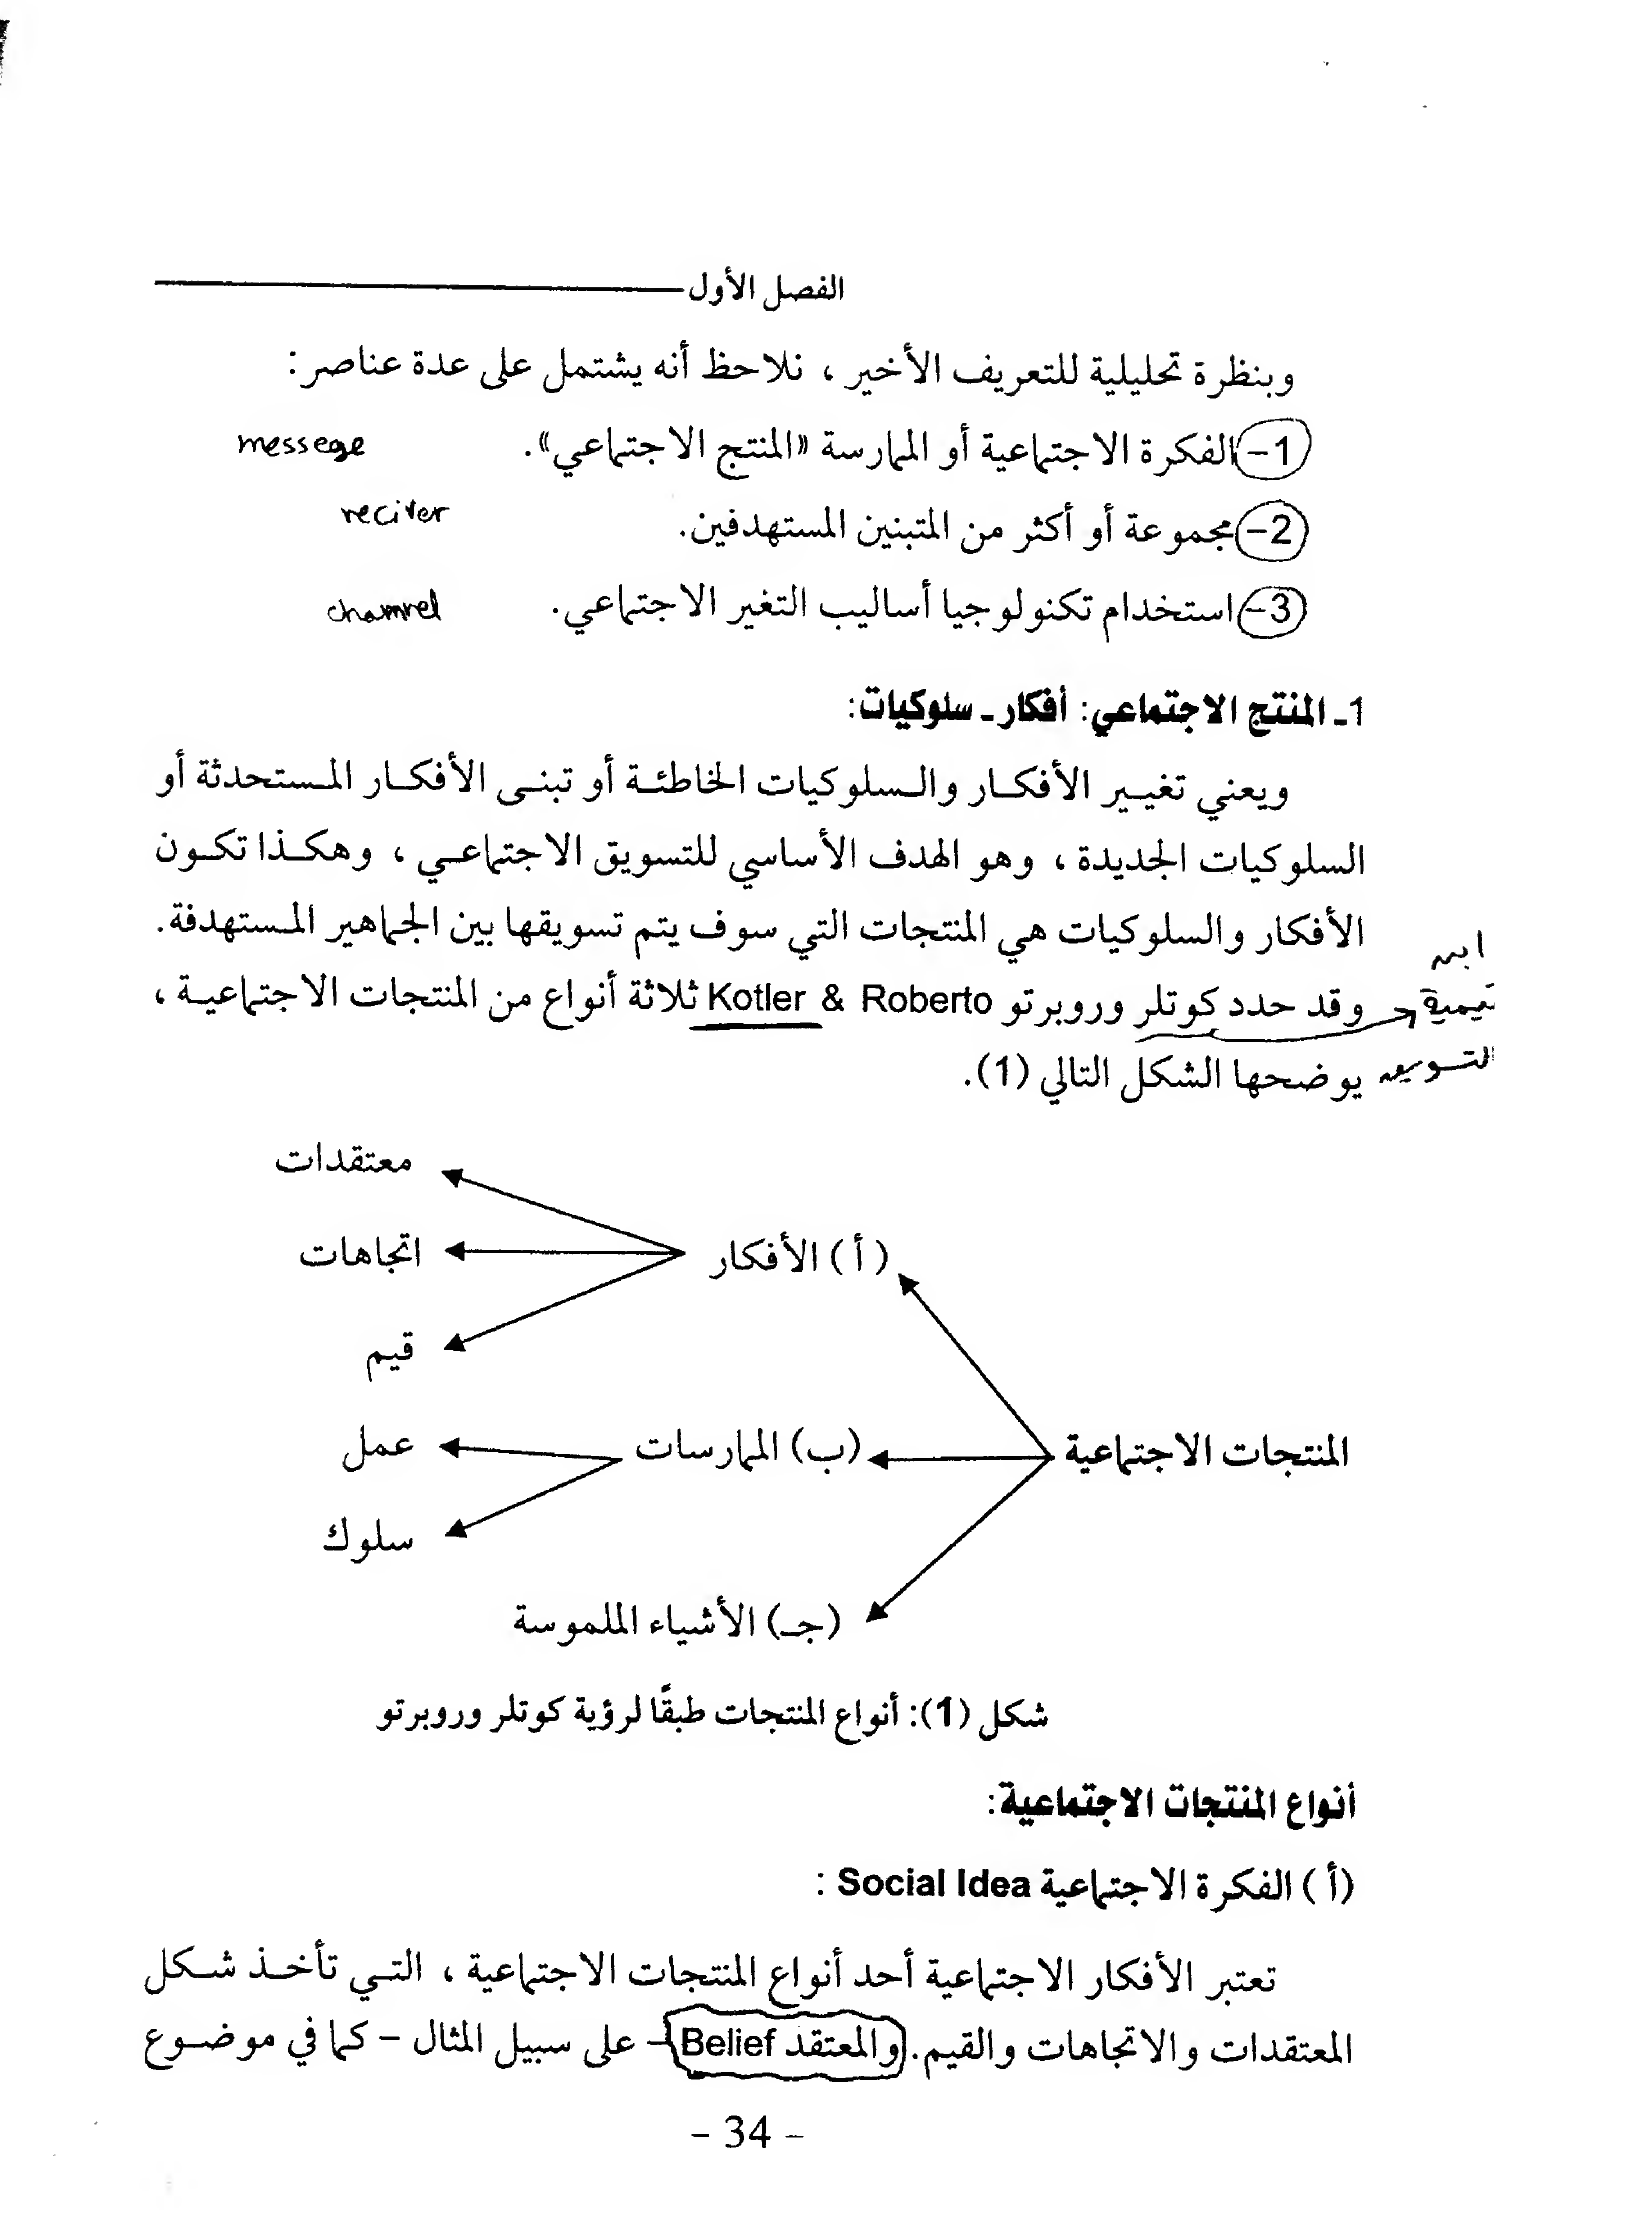 الفصل الأول
وبنظرة تحليلية للتعريف الأخير ، نلاحظ أنه يشتمل على عدة عناصر:
1- الفكرة الاجتماعية أو الممارسة «المنتج الاجتماعي». messege
2- مجموعة أو أكثر من المتبنين المستهدفين. reciver
3- استخدام تكنولوجيا أساليب التغير الاجتماعي. channel
1ـ المنتج الاجتماعي: أفكار ـ سلوكيات:
ويعني تغيير الأفكار والسلوكيات الخاطئة أو تبنى الأفكار المستحدثة أو
السلوكيات الجديدة ، وهو الهدف الأساسي للتسويق الاجتماعي ، وهكذا تكون
الأفكار والسلوكيات هي المنتجات التي سوف يتم تسويقها بين الجماهير المستهدفة.
وقد حدد كوتلر وروبرتو Kotler & Roberto ثلاثة أنواع من المنتجات الاجتماعية ،
يوضحها الشكل التالي (1).
معتقدات
(أ) الأفكار اتجاهات
قيم
المنتجات الاجتماعية (ب) الممارسات عمل
سلوك
(جـ) الأشياء الملموسة
شكل (1): أنواع المنتجات طبقًا لرؤية كوتلر وروبرتو
أنواع المنتجات الاجتماعية:
(أ) الفكرة الاجتماعية Social Idea :
تعتبر الأفكار الاجتماعية أحد أنواع المنتجات الاجتماعية ، التي تأخذ شكل
المعتقدات والاتجاهات والقيم. والمعتقد Belief – على سبيل المثال – كما في موضوع
- 34 -